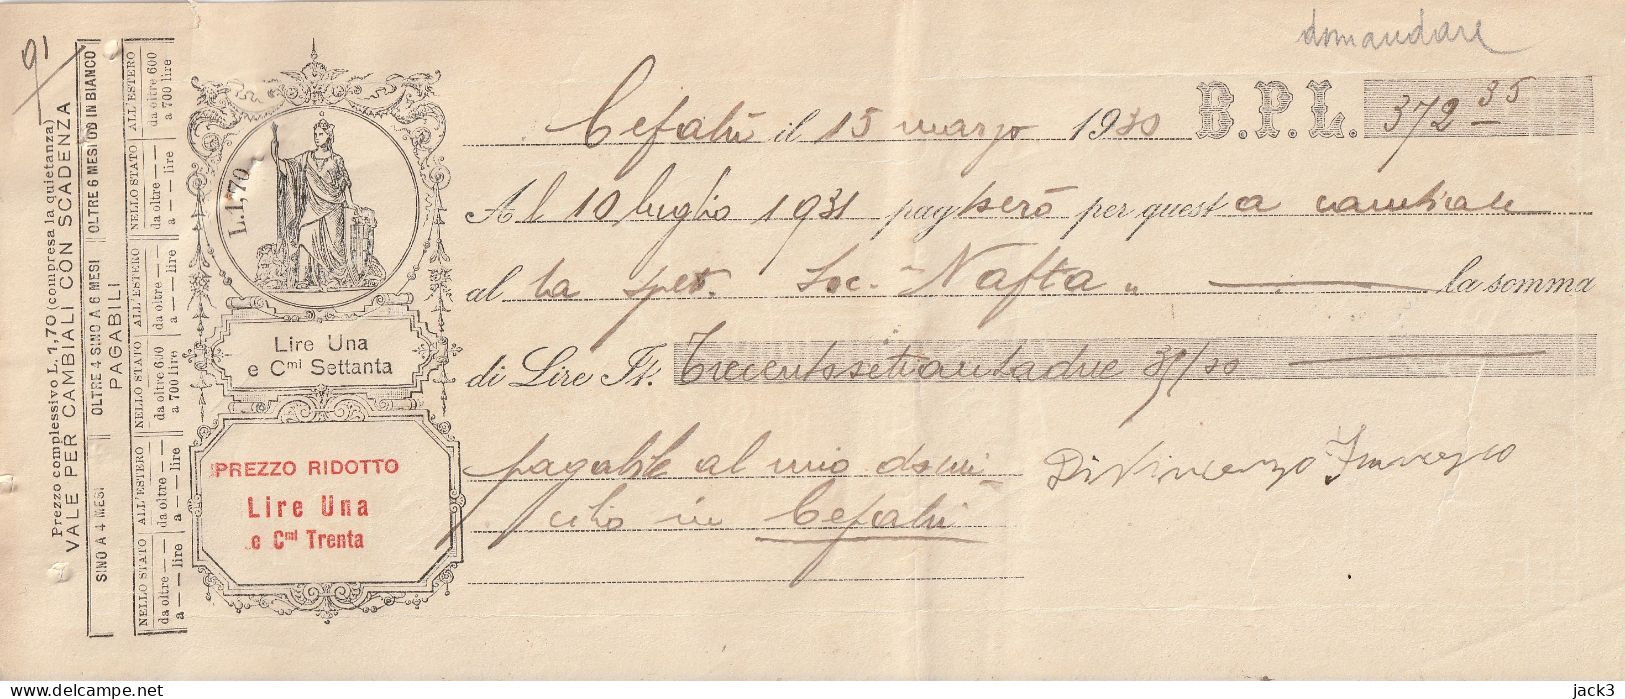 domandare
91
Prezzo complessivo L. 1,70 (compresa la quietanza)
VALE PER CAMBIALI CON SCADENZA
SINO A 4 MESI OLTRE 4 SINO A 6 MESI OLTRE 6 MESI OD IN BIANCO
PAGABILI
NELLO STATO ALL'ESTERO NELLO STATO ALL'ESTERO NELLO STATO ALL'ESTERO
da oltre — da oltre — da oltre 600 da oltre — da oltre — da oltre 600
a — lire a — lire a 700 lire a — lire a — lire a 700 lire
L.1,70
Lire Una
e Cmi Settanta
PREZZO RIDOTTO
Lire Una
e Cmi Trenta
Cefalù il 15 marzo 1930 B.P.L. 372 35
Al 10 luglio 1931 pagherò per questa cambiale
al la spet. Soc. "Nafta" la somma
di Lire It. Trecentosettantadue 35/
pagabile al mio domi
cilio in Cefalù
Di Vincenzo Francesco
delcampe.net
jack3